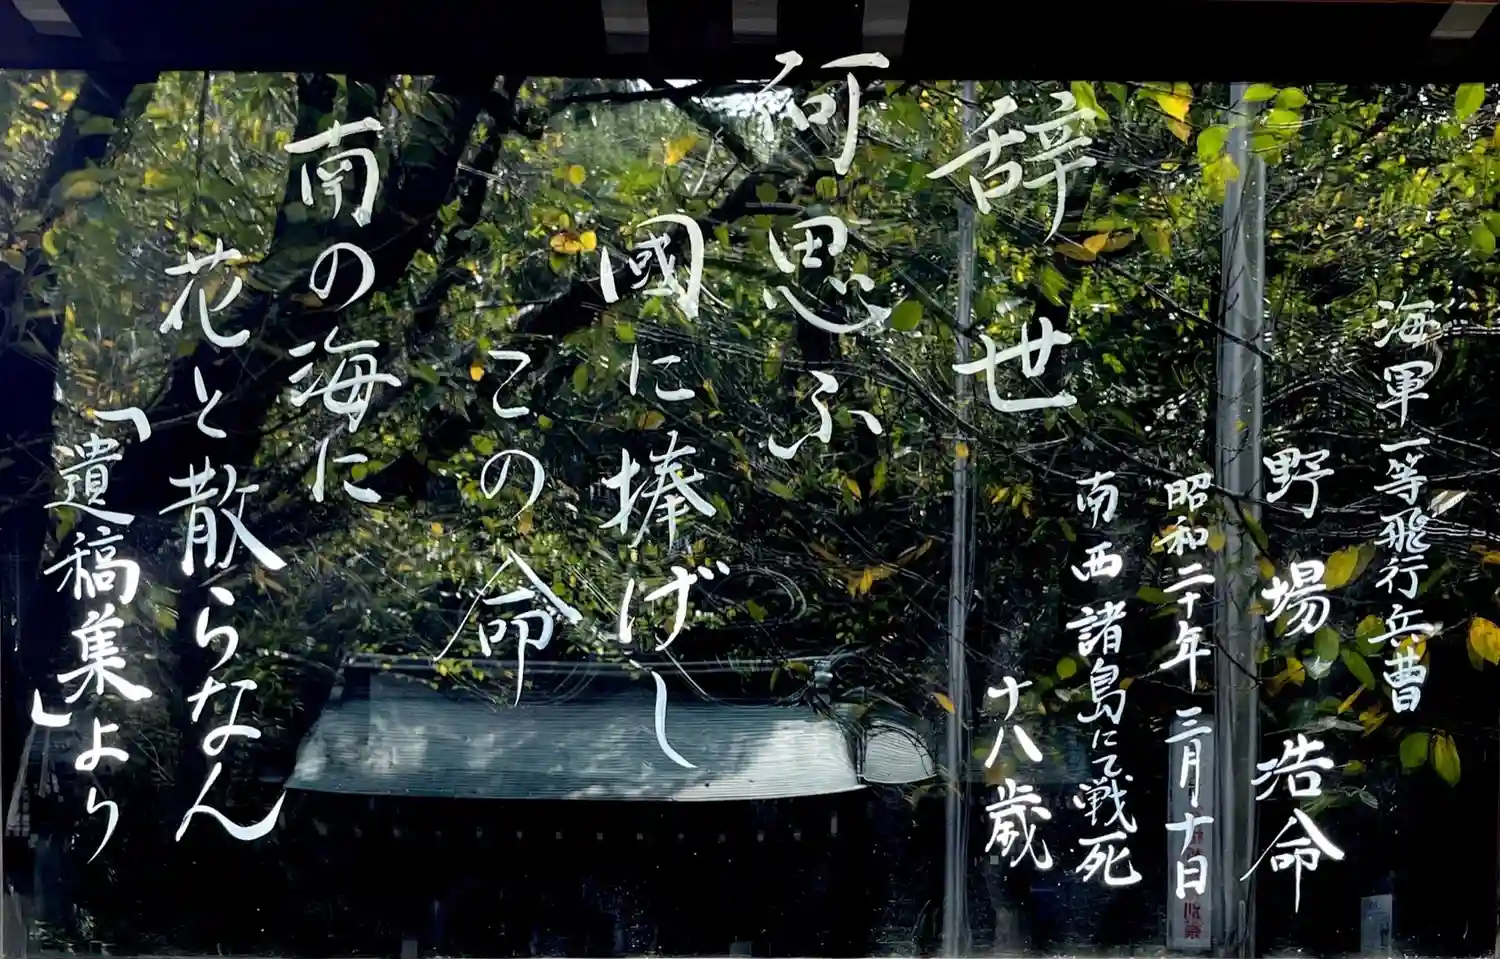 海軍一等飛行兵曹
野場浩命
昭和二十年三月十日
南西諸島にて戦死
十八歳
辞世
何思ふ
國に捧げし
この命
南の海に
花と散らなん
「遺稿集」より